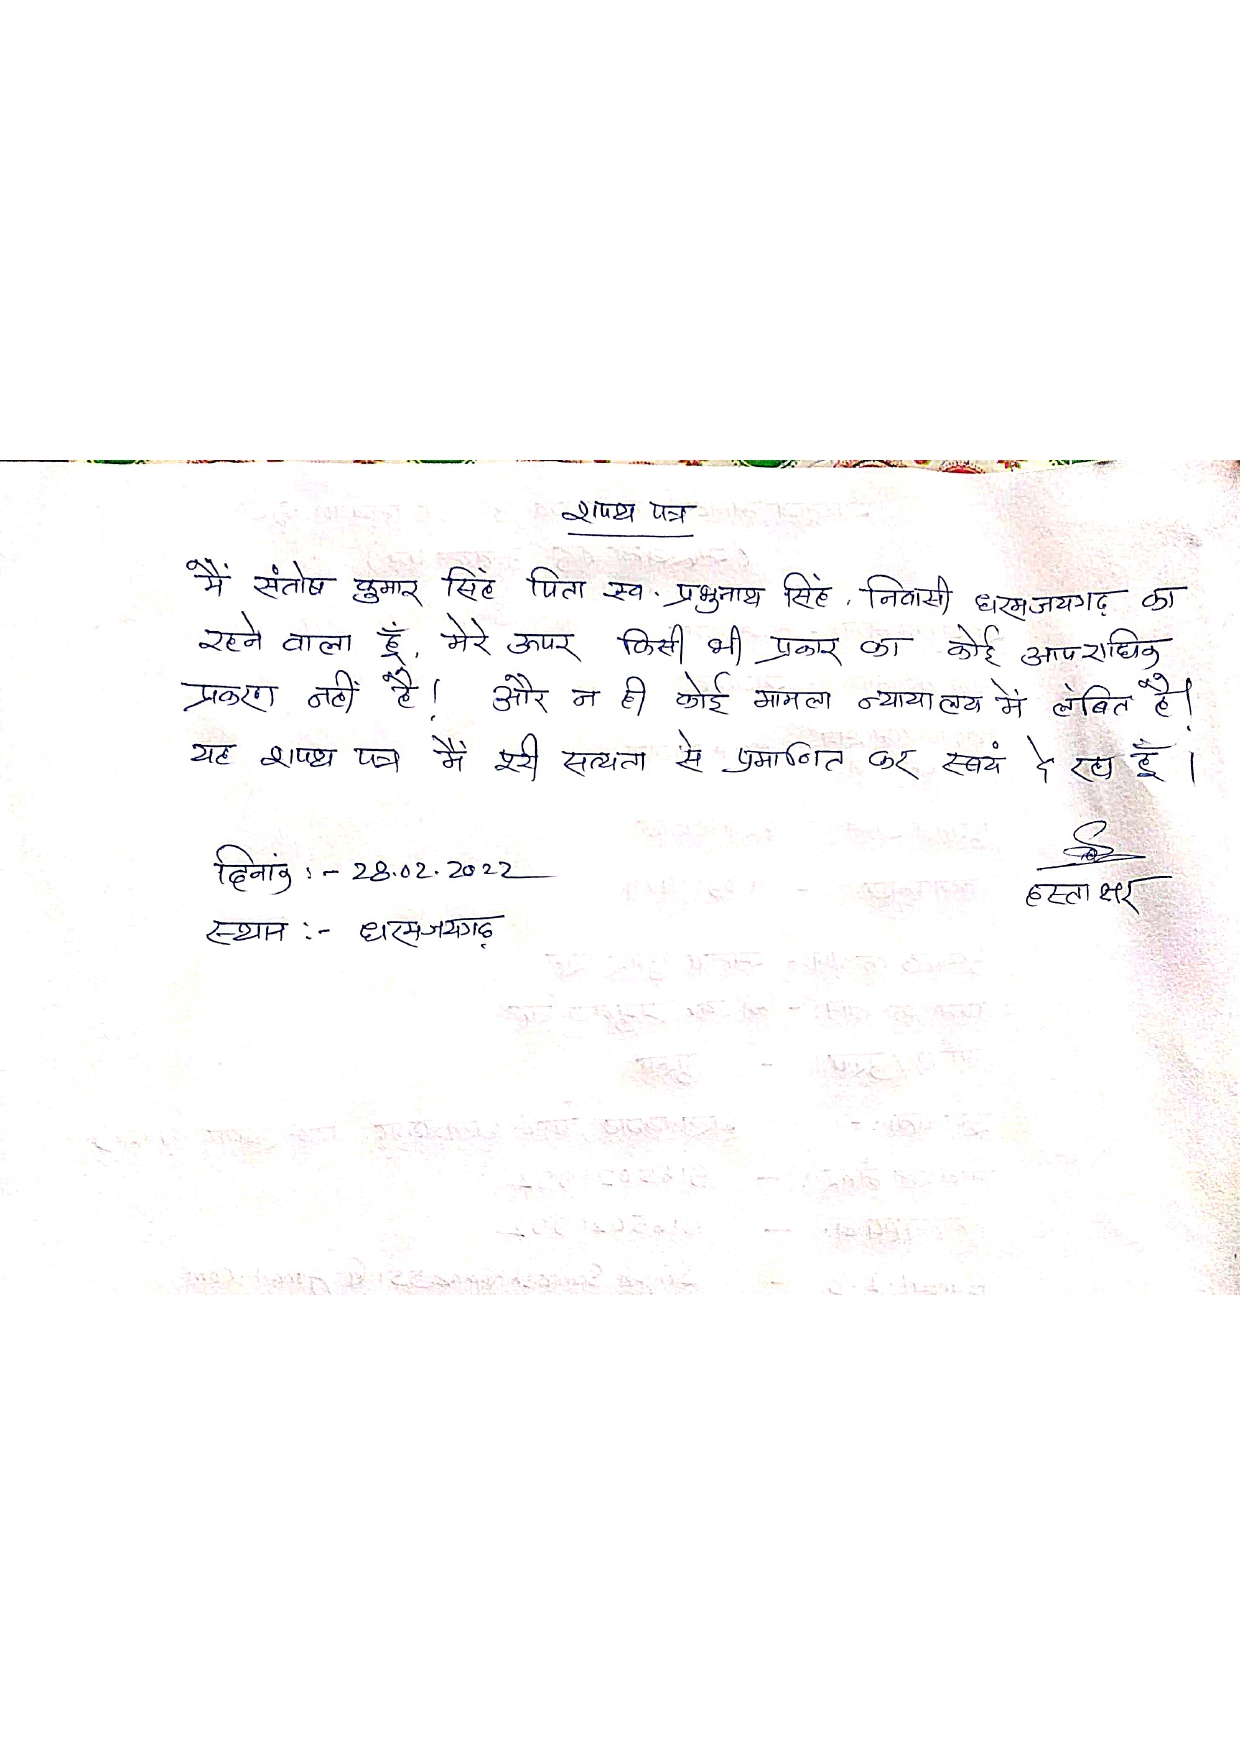 शपथ पत्र
मैं संतोष कुमार सिंह पिता स्व. प्रभुनाथ सिंह, निवासी धरमजयगढ़ का
रहने वाला हूँ, मेरे ऊपर किसी भी प्रकार का कोई आपराधिक
प्रकरण नहीं है! और न ही कोई मामला न्यायालय में लंबित है!
यह शपथ पत्र मैं पूरी सत्यता से प्रमाणित कर स्वयं दे रहा हूँ ।
दिनांक :- 28.02.2022
हस्ताक्षर
स्थान :- धरमजयगढ़